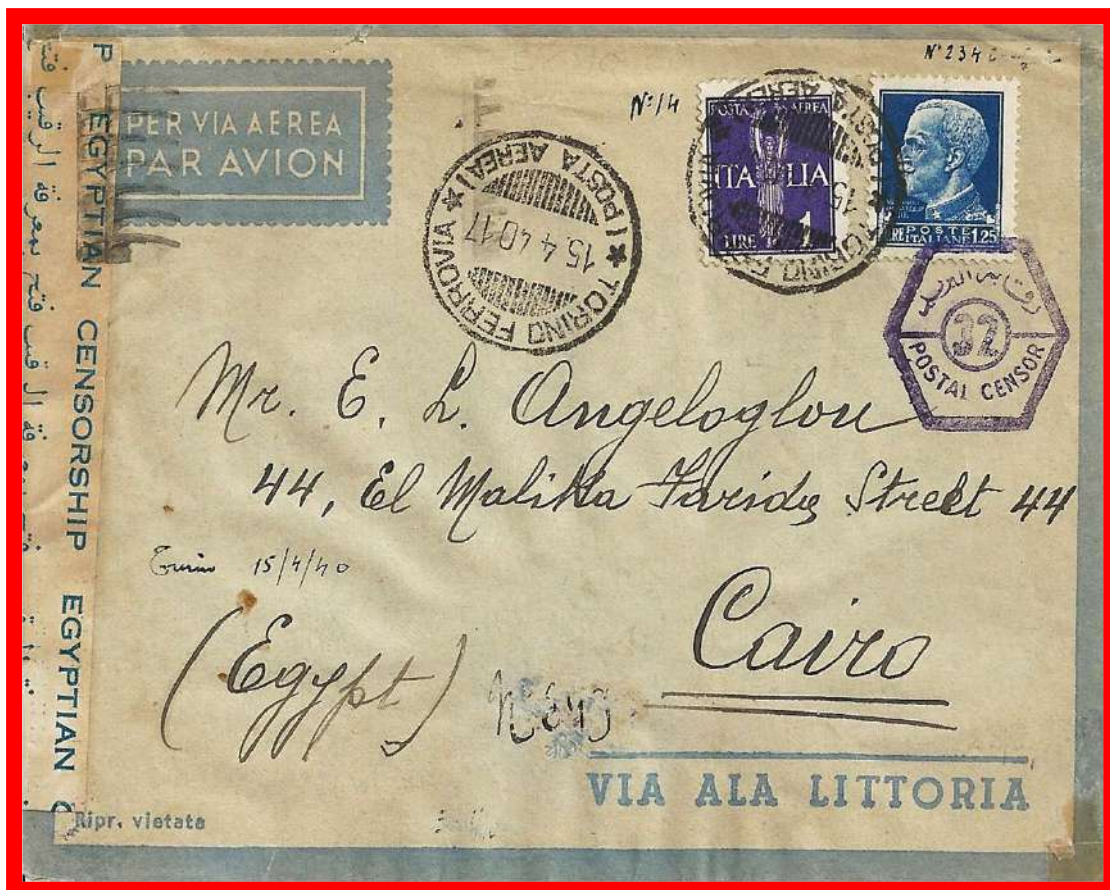 P EGYPTIAN CENSORSHIP EGYPTIAN C
PER VIA AEREA
PAR AVION
Nº 14
Nº 234
★ TORINO FERROVIA ★
(POSTA AEREA)
15.4.40.17
POSTA AEREA
ITALIA
LIRE 1
LIRE POSTE ITALIANE 1.25
رقابة البريد
32
POSTAL CENSOR
Mr. E. L. Angeloglou
44, El Malika Farida Street 44
15/4/40
Cairo
(Egypt)
VIA ALA LITTORIA
Ripr. vietata